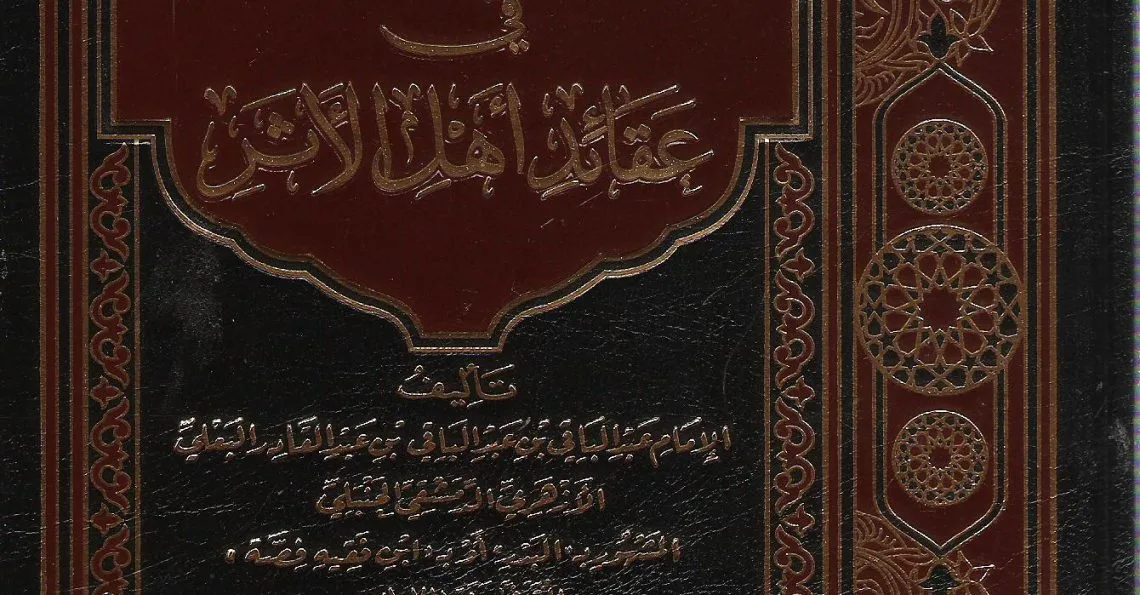 في
عَقَائِدِ أَهْلِ الأَثَرِ
تَأليفُ
الإمَام عَبْد البَاقي بْن عَبْد البَاقي بْن عَبْد القَادِر البَعْليِّ
الأزْهَريِّ الدِّمَشْقيِّ الحَنْبَليِّ
المشهور بـ البدر أو بـ ابن فقيه فصّة ،